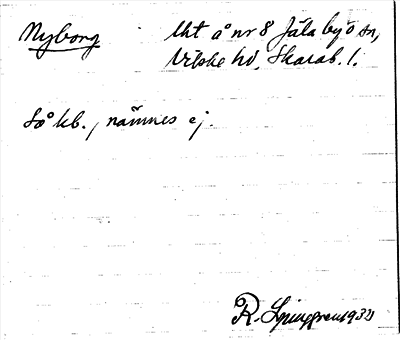 Nyborg Uht å nr 8 Jäla by o sn,
Vilske hd, Skarab. l.
Så kb., nämnes ej.
R. Ljunggren 1932